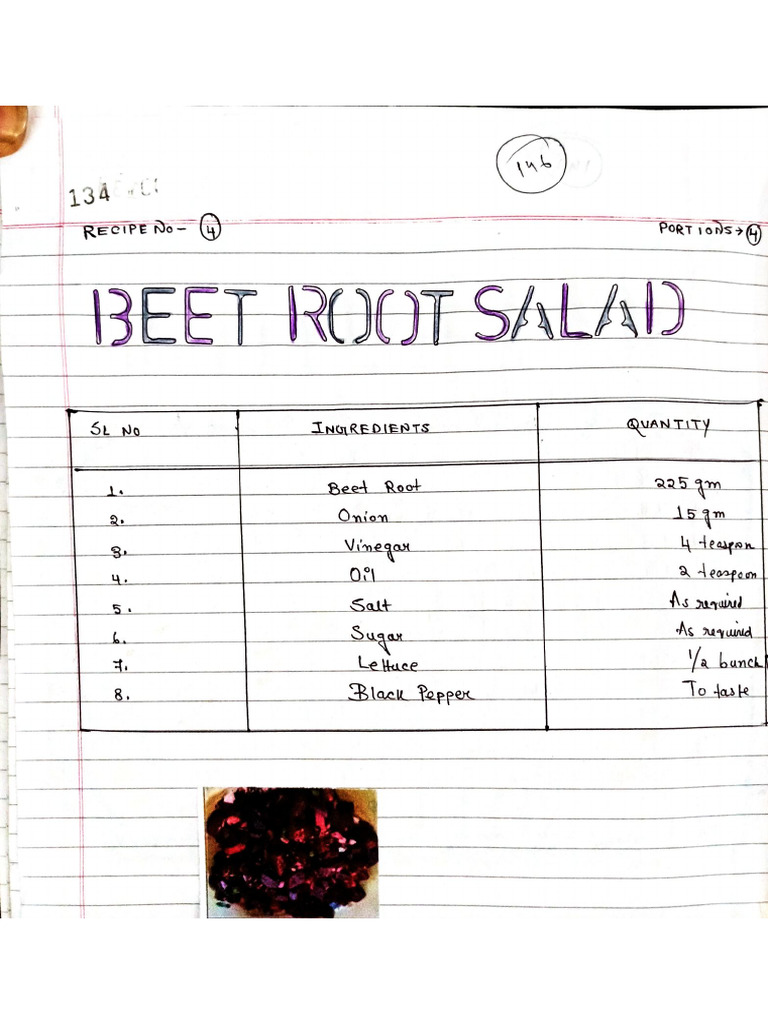 146
134
RECIPE NO- 4 PORTIONS→ 4
BEET ROOT SALAD
SL NO INGREDIENTS QUANTITY
1. Beet Root 225 gm
2. Onion 15 gm
3. Vinegar 4 teaspoon
4. Oil 2 teaspoon
5. Salt As required
6. Sugar As required
7. Lettuce 1/2 bunch
8. Black Pepper To taste